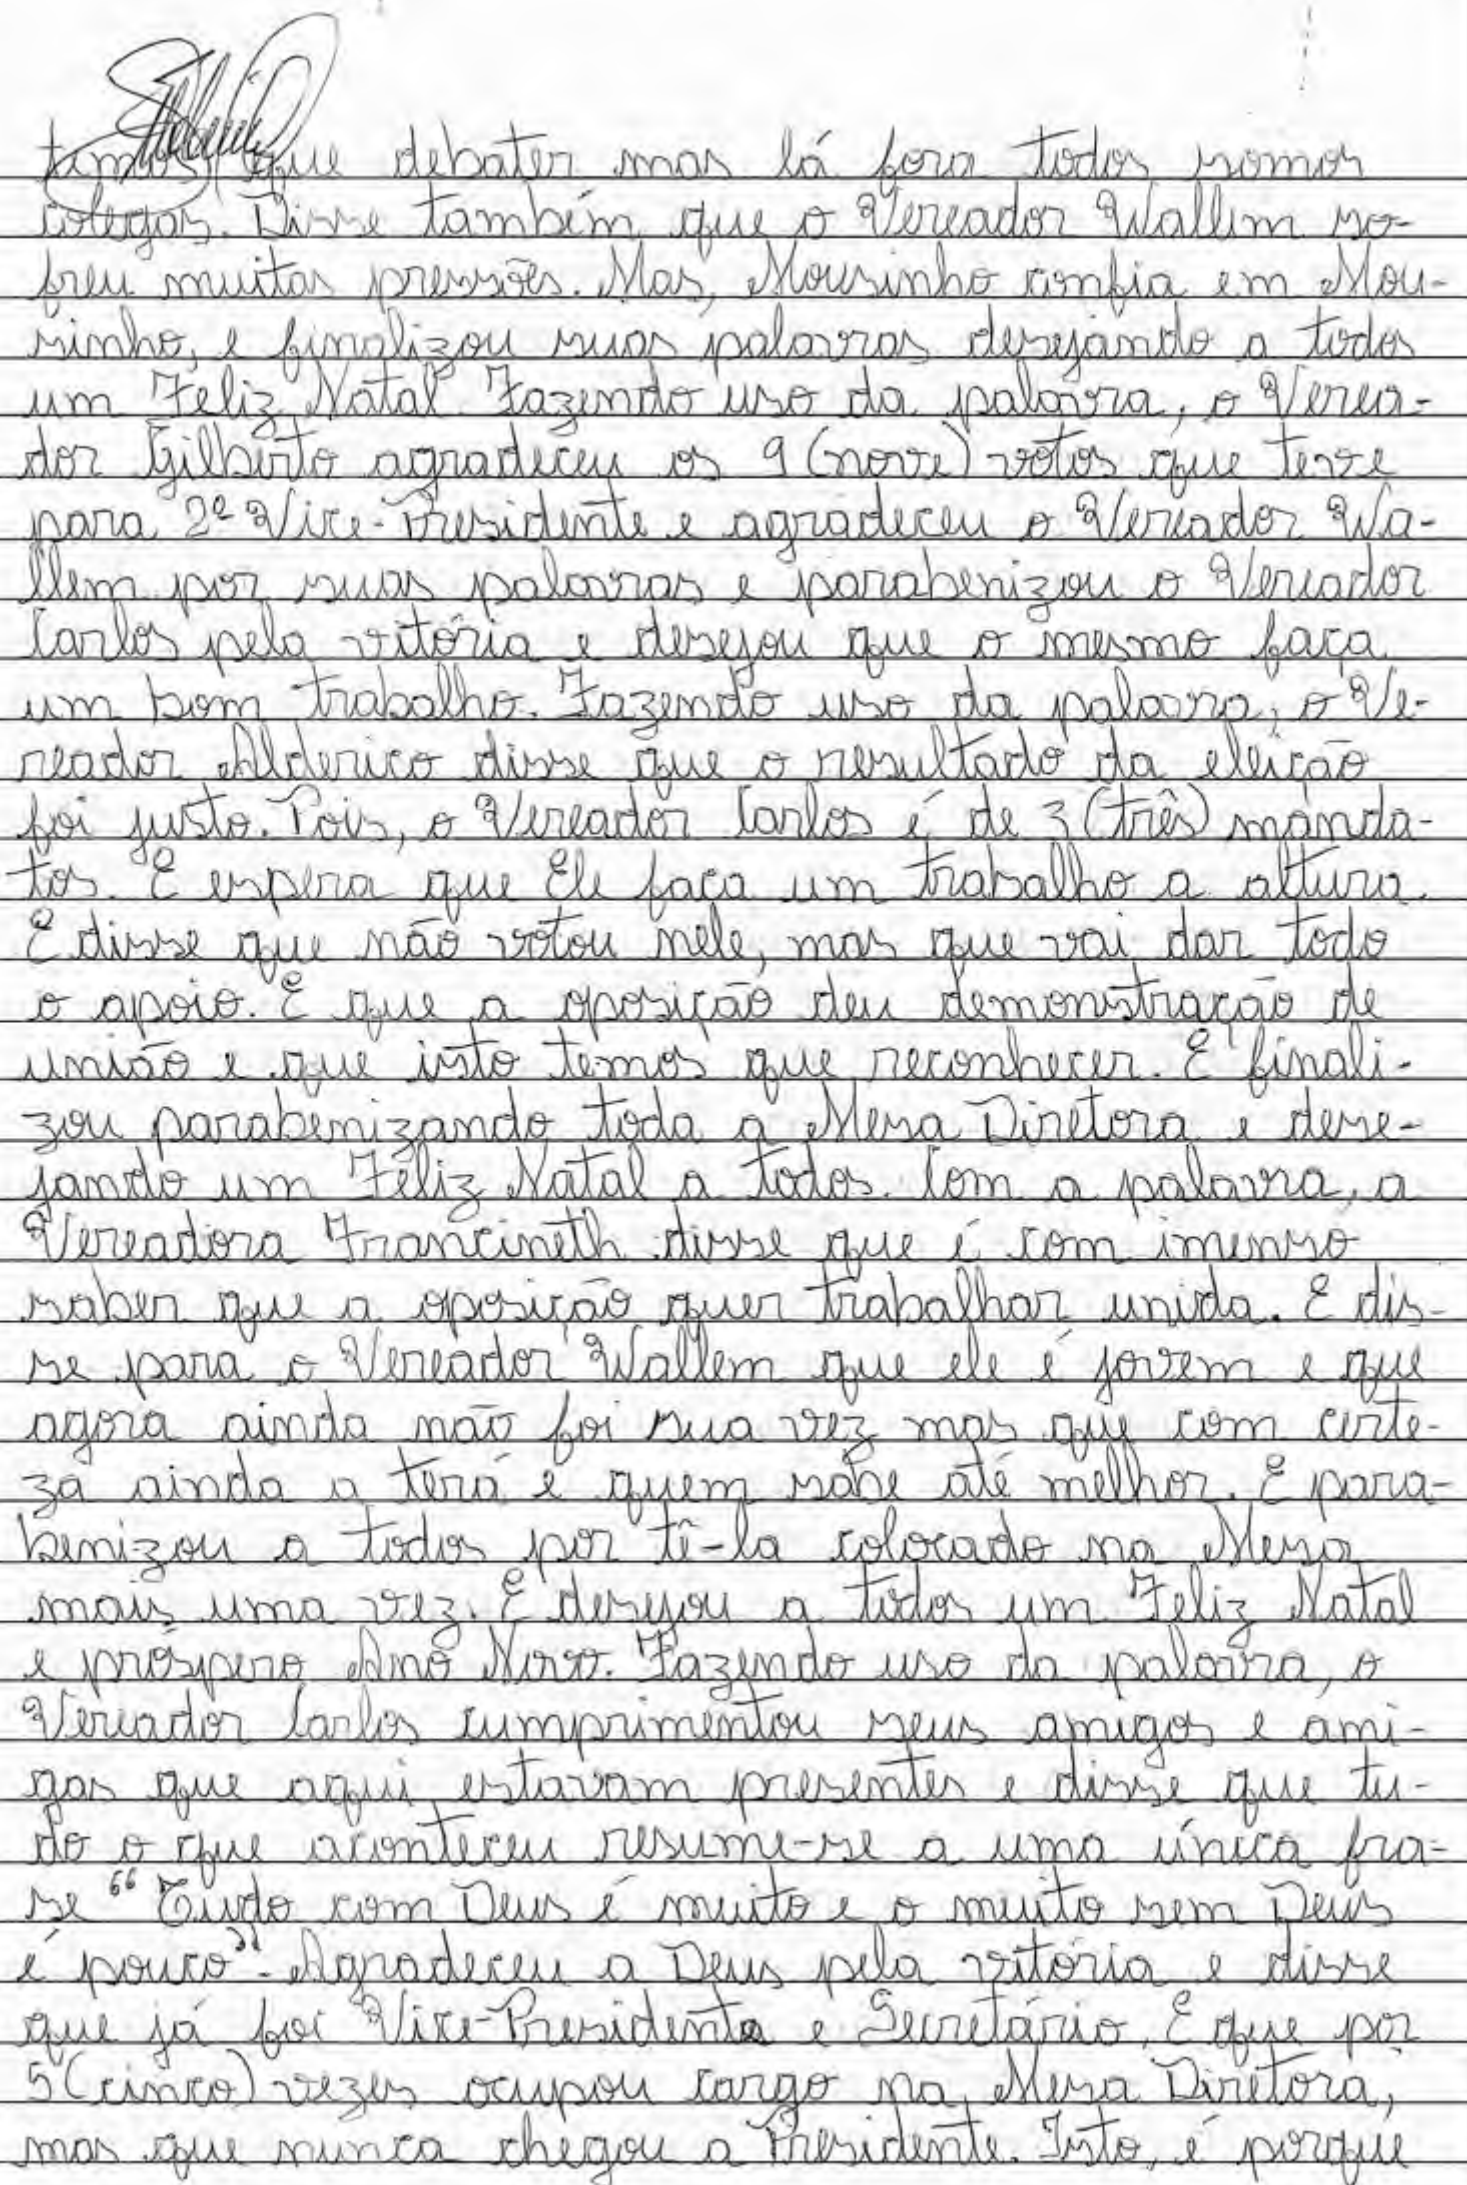 temos que debater mas lá fora todos somos
colegas. Disse também que o Vereador Wallem so-
freu muitas pressões. Mas, Mousinho confia em Mou-
sinho, e finalizou suas palavras desejando a todos
um Feliz Natal. Fazendo uso da palavra, o Verea-
dor Gilberto agradeceu os 9 (nove) votos que teve
para 2º Vice-Presidente e agradeceu o Vereador Wa-
llem por suas palavras e parabenizou o Vereador
Carlos pela vitória e desejou que o mesmo faça
um bom trabalho. Fazendo uso da palavra, o Ve-
reador Alderico disse que o resultado da eleição
foi justo. Pois, o Vereador Carlos é de 3 (três) manda-
tos. E espera que Ele faça um trabalho a altura.
E disse que não votou nele, mas que vai dar todo
o apoio. E que a oposição deu demonstração de
união e que isto temos que reconhecer. E finali-
zou parabenizando toda a Mesa Diretora e dese-
jando um Feliz Natal a todos. Com a palavra, a
Vereadora Francineth disse que é com imenso
saber que a oposição quer trabalhar unida. E dis-
se para o Vereador Wallem que ele é jovem e que
agora ainda não foi sua vez mas que com certe-
za ainda a terá e quem sabe até melhor. E para-
benizou a todos por tê-la colocado na Mesa
mais uma vez. E desejou a todos um Feliz Natal
e próspero Ano Novo. Fazendo uso da palavra, o
Vereador Carlos cumprimentou seus amigos e ami-
gas que aqui estavam presentes e disse que tu-
do o que aconteceu resume-se a uma única fra-
se "Tudo com Deus é muito e o muito sem Deus
é pouco". Agradeceu a Deus pela vitória e disse
que já foi Vice-Presidente e Secretário. E que por
5 (cinco) vezes ocupou cargo na Mesa Diretora,
mas que nunca chegou a Presidente. Isto, é porque